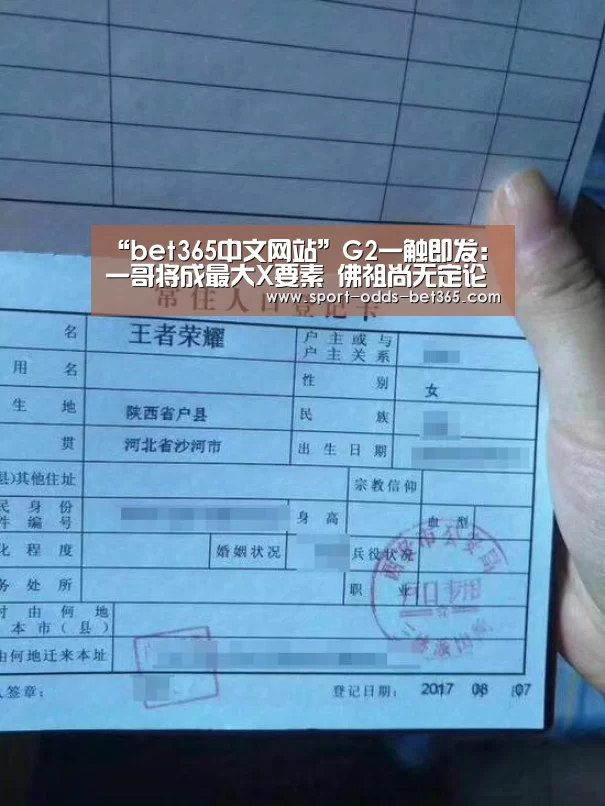 “bet365中文网站”G2一触即发:
一哥将成最大X要素 佛祖尚无定论
www.sport-odds-bet365.com
常住人口登记卡
名 王者荣耀 户主或与
户主关系
用名 性别 女
生地 陕西省户县 民族
贯 河北省沙河市 出生日期
县)其他住址 宗教信仰
民身份
件编号 身高 血型
化程度 婚姻状况 兵役状况
务处所 职业
时由何地
本市(县)
由何地迁来本址
人签章: 登记日期: 2017 08 07